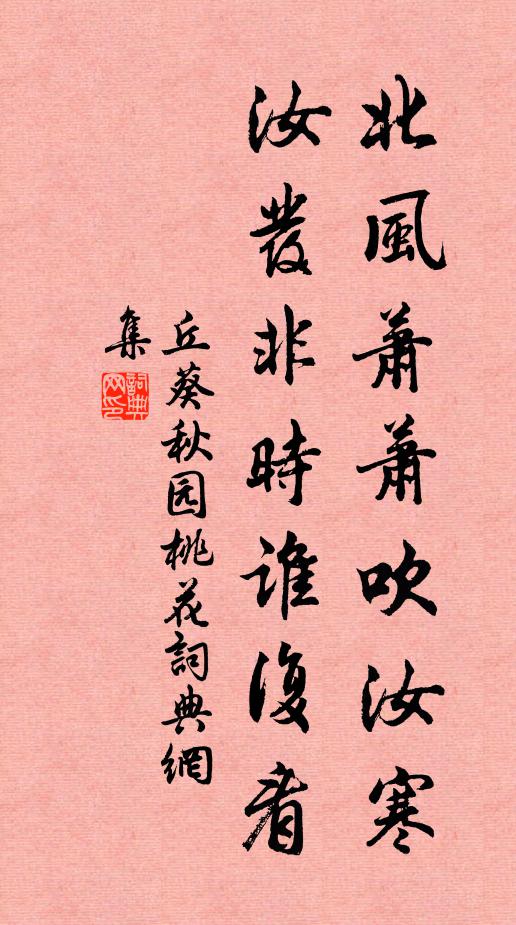 北風蕭蕭吹汝寒
汝發非時誰復看
丘葵秋园桃花詞典網
集
詞典
网印